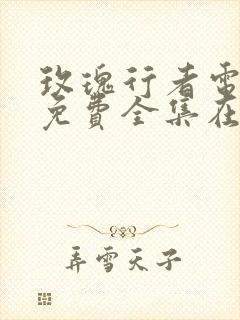 玫瑰行者電
免費全集在
弄雪天子